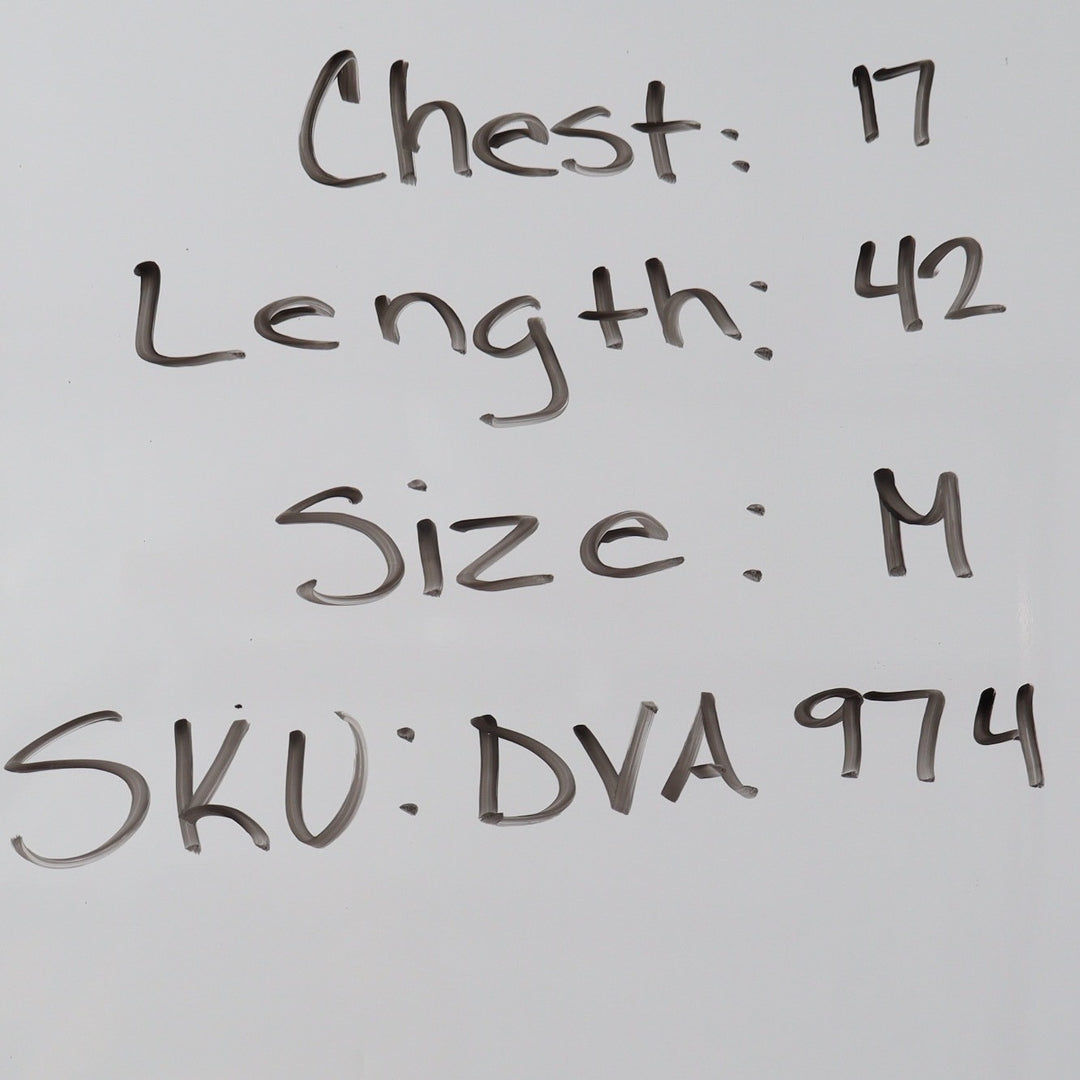 Chest: 17
Length: 42
Size: M
SKU: DVA 974